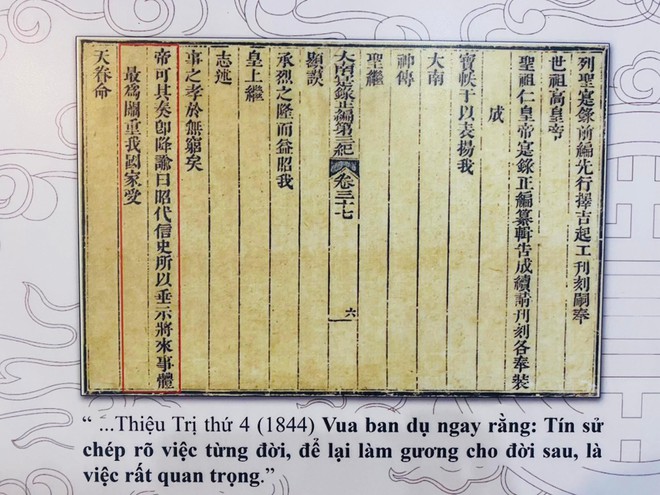 列聖寔錄前編先行擇吉起工刊刻嗣奉
世祖高皇帝
聖祖仁皇帝寔錄正編纂輯告成續請刊刻各奉裝
成
寶帙于以表揚我
大南
神傳
聖繼
大南寔錄正編第三紀 卷三十七 六
顯謨
承烈之隆而益昭我
皇上繼
志述
事之孝於無窮矣
帝可其奏卽降諭曰昭代信史所以垂示將來事體
最爲關重我國家受
天眷命
“ ...Thiệu Trị thứ 4 (1844) Vua ban dụ ngay rằng: Tín sử
chép rõ việc từng đời, để lại làm gương cho đời sau, là
việc rất quan trọng.”